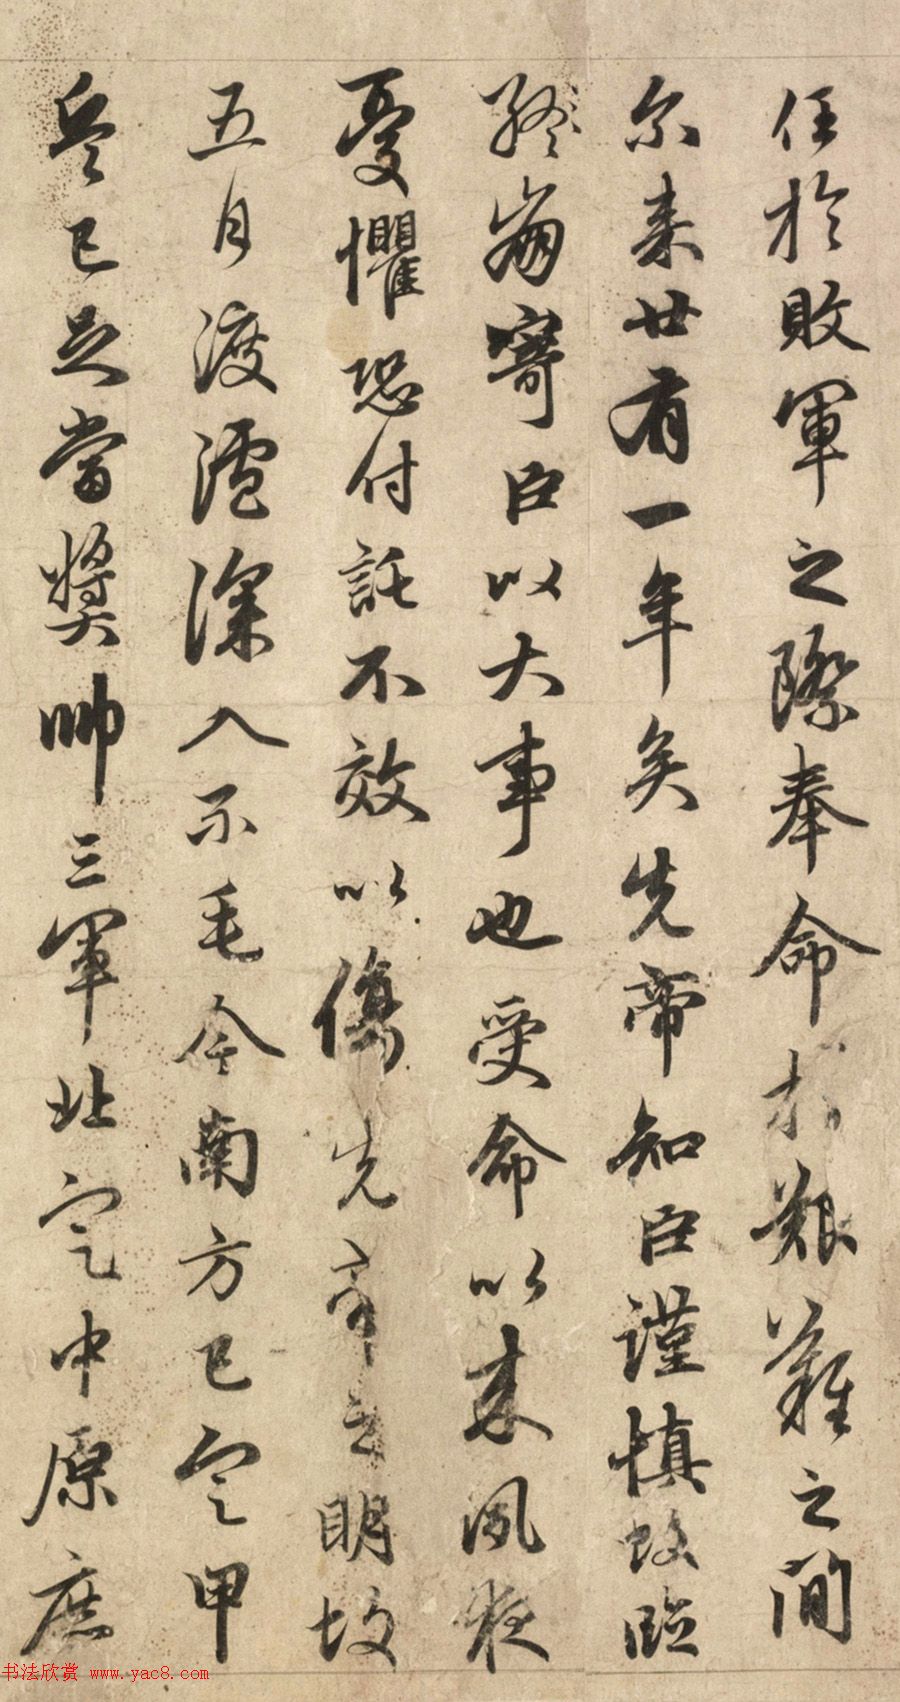 任於敗軍之際奉命於艱難之間
尔来廿有一年矣先帝知臣謹慎故臨
終崩寄臣以大事也受命以来夙夜
憂懼恐付託不效以傷先帝之明故
五月渡瀘深入不毛今南方已定甲
兵已足當獎帥三軍北定中原庶
书法欣赏 www.yac8.com